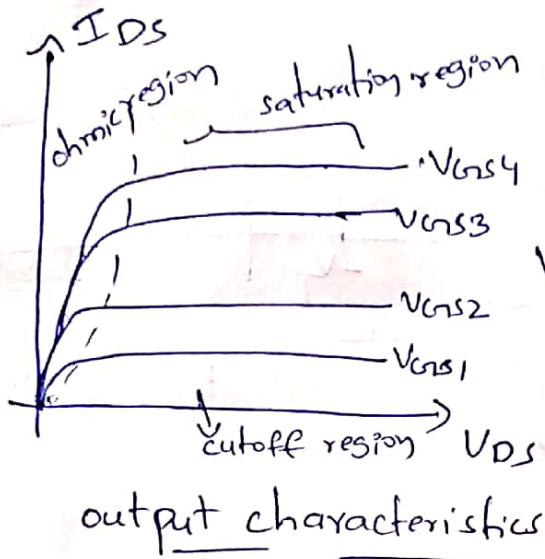 IDS
ohmic region
saturation region
VGS4
VGS3
VGS2
VGS1
cutoff region
VDS
output characteristics